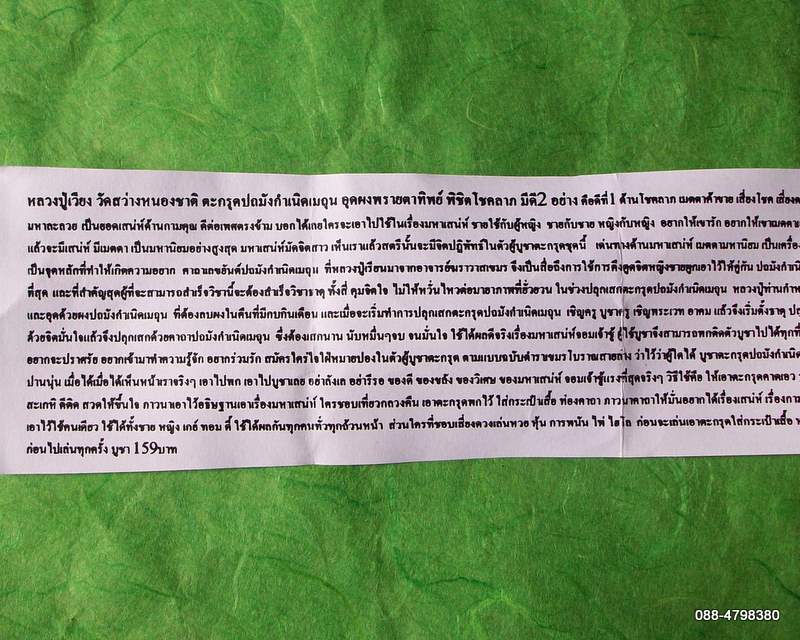 หลวงปู่เวียง วัดสว่างหนองชาติ ตะกรุดปถมังกำเนิดเมถุน อุดผงพรายตาทิพย์ พิชิตโชคลาภ มีดี2 อย่าง คือดีที่1 ด้านโชคลาภ เมตตาค้าขาย เสี่ยงโชค
มหาละลวย เป็นยอดเสน่ห์ด้านกามคุณ ดีต่อเพศตรงข้าม บอกได้เลยใครจะเอาไปใช้ในเรื่องมหาเสน่ห์ ชายใช้กับผู้หญิง ชายกับชาย หญิงกับหญิง อยากให้เขารัก อยากให้เขาเมตตา
แล้วจะมีเสน่ห์ มีเมตตา เป็นมหานิยมอย่างสูงสุด มหาเสน่ห์มัดจิตสาว เห็นเราแล้วสตรีนั้นจะมีจิตปฏิพัทธ์ในตัวผู้บูชาตะกรุดชุดนี้ เด่นทางด้านมหาเสน่ห์ เมตตามหานิยม
เป็นจุดหลักที่ทำให้เกิดความอยาก คาถาเลขยันต์ปถมังกำเนิดเมถุน ที่หลวงปู่เรียนมาจากอาจารย์ฆราวาสเขมร จึงเป็นสื่อถึงการใช้การดึงดูดจิตหญิงชายผูกเอาไว้ให้คู่กัน
ที่สุด และที่สำคัญสุดผู้ที่จะสามารถสำเร็จวิชานี้จะต้องสำเร็จวิชาธาตุ ทั้งสี่ คุมจิตใจ ไม่ให้หวั่นไหวต่อมายาภาพที่ยั่วยวน ในช่วงปลุกเสกตะกรุดปถมังกำเนิดเมถุน หลวงปู่ท่าน
และอุดด้วยผงปถมังกำเนิดเมถุน ที่ต้องลบผงในคืนที่มีกบกินเดือน และเมื่อจะเริ่มทำการปลุกเสกตะกรุดปถมังกำเนิดเมถุน เชิญครู บูชาครู เชิญพระเวท อาคม แล้วจึงเริ่มตั้งธาตุ
ด้วยจิตมั่นใจแล้วจึงปลุกเสกด้วยคาถาปถมังกำเนิดเมถุน ซึ่งต้องเสกนาน นับหมื่นๆจบ จนมั่นใจ ใช้ได้ผลดีจริงเรื่องมหาเสน่ห์จอมเจ้าชู้ ผู้ใช้บูชาจึงสามารถพกติดตัวบูชาไปได้ทุกที่
อยากจะปราศรัย อยากเข้ามาทำความรู้จัก อยากร่วมรัก สมัครใคร่ใจใฝ่หมายปองในตัวผู้บูชาตะกรุด ตามแบบฉบับตำราเขมรโบราณสายล่าง ว่าไว้ว่าผู้ใดได้ บูชาตะกรุดปถมังกำเนิด
ปานนุ่น เมื่อได้เมื่อได้เห็นหน้าเราจริงๆ เอาไปพก เอาไปบูชาเลย อย่าลังเล อย่ารีรอ ของดี ของขลัง ของวิเศษ ของมหาเสน่ห์ จอมเจ้าชู้แรงที่สุดจริงๆ วิธีใช้คือ ให้เอาตะกรุดคาดเอว
สะเกทิ ติติด สวดให้ขึ้นใจ ภาวนาเอาไว้อธิษฐานเอาเรื่องมหาเสน่ห์ ใครชอบเที่ยวกลางคืน เอาตะกรุดพกไว้ ใส่กระเป๋าเสื้อ ท่องคาถา ภาวนาคาถาให้มั่นอยากได้เรื่องเสน่ห์
เอาไว้ใช้คนเดียว ใช้ได้ทั้งชาย หญิง เกย์ ทอม ดี้ ใช้ได้ผลกันทุกคนทั่วทุกถ้วนหน้า ส่วนใครที่ชอบเสี่ยงดวงเล่นหวย หุ้น การพนัน ไพ่ ไฮโล ก่อนจะเล่นเอาตะกรุดใส่กระเป๋าเสื้อ
ก่อนไปเล่นทุกครั้ง บูชา 159บาท
088-4798380